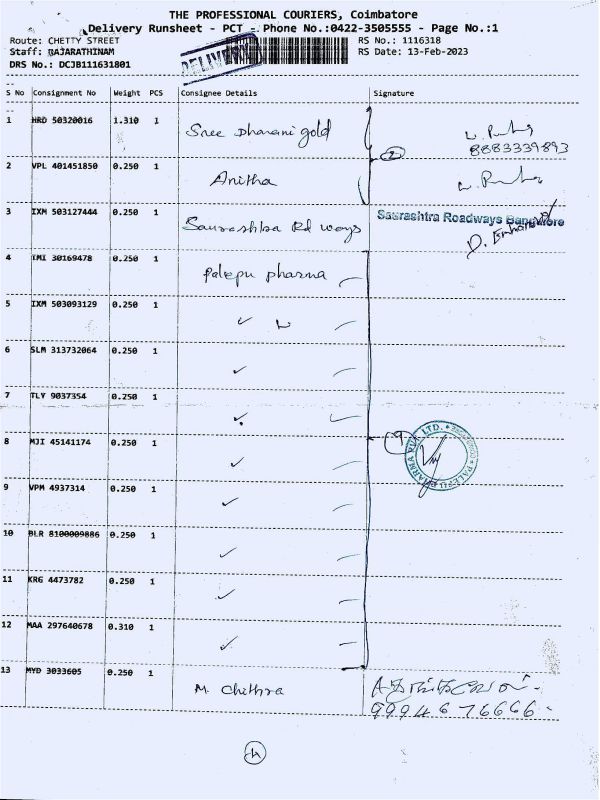 THE PROFESSIONAL COURIERS, Coimbatore
Delivery Runsheet - PCT - Phone No.:0422-3505555 - Page No.:1
Route: CHETTY STREET RS No.: 1116318
Staff: RAJARATHINAM RS Date: 13-Feb-2023
DRS No.: DCJB111631801
DELIVERY
S No Consignment No Weight PCS Consignee Details Signature
1 HRD 50320016 1.310 1 Sree Dharani gold
8883339893
2
2 VPL 401451850 0.250 1 Anitha
3 IXM 503127444 0.250 1 Saurashtra Rd ways Saurashtra Roadways Bangalore
4 IMI 30169478 0.250 1 Palepu pharma
5 IXM 503093129 0.250 1
6 SLM 313732064 0.250 1
7 TLY 9037354 0.250 1
9
8 MJI 45141174 0.250 1
9 VPM 4937314 0.250 1
10 BLR 8100009886 0.250 1
11 KRG 4473782 0.250 1
12 MAA 297640678 0.310 1
13 MYD 3033605 0.250 1 M. Chithra
9994676666
4